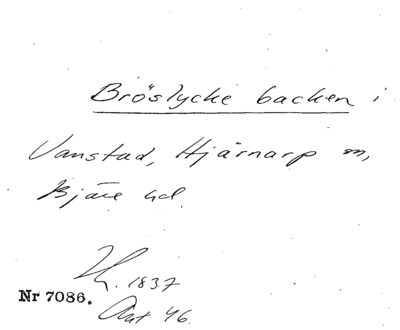 Bröslycke backen i
Vanstad, Hjärnarp sn,
Bjäre hd.
1837
Nr 7086.
Ant 46.